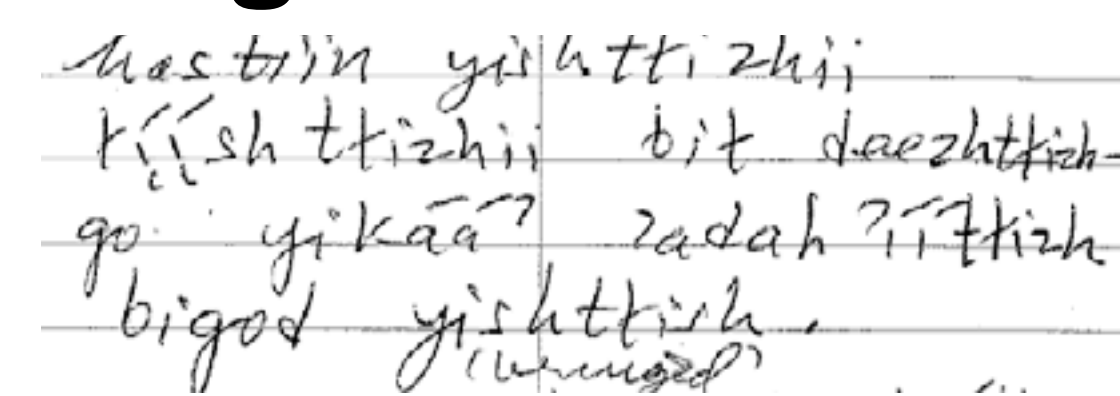 hastiin yishtłizhii
łį́į́sh tłizhii bił daezhtłizh-
go yikááʔ ʔadah ʔííłtłizh
bigod yishtłish.